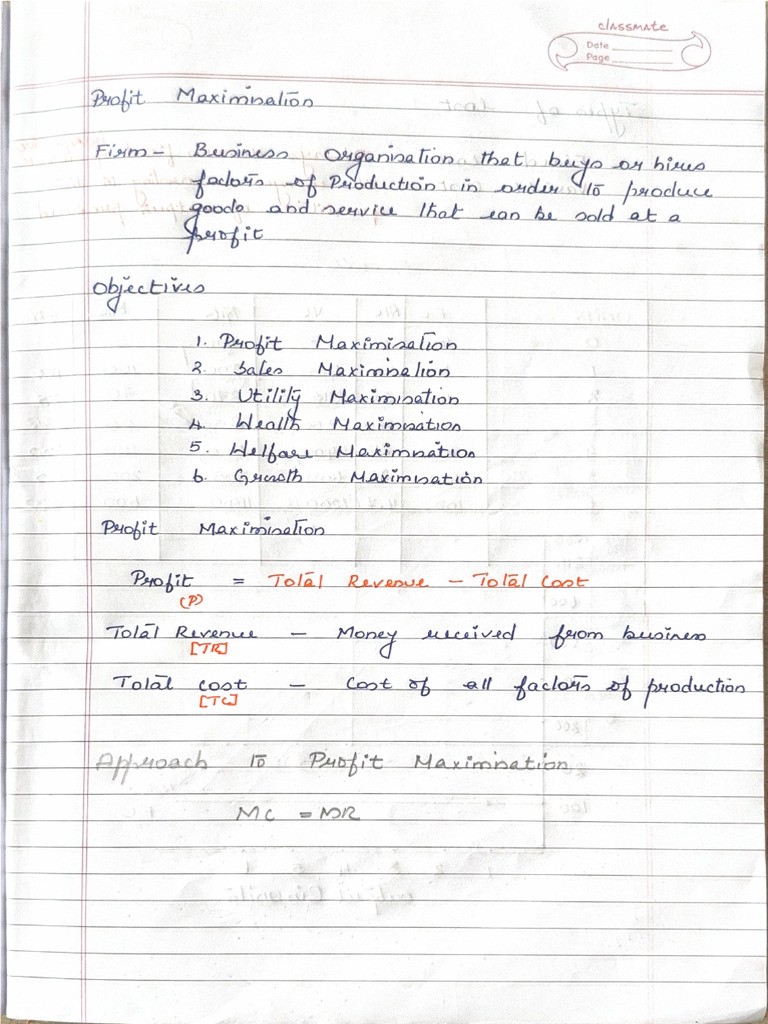 classmate
Date
Page
Profit Maximisation
Firm - Business Organisation that buys or hires
factors of Production in order to produce
goods and service that can be sold at a
profit
Objectives
1. Profit Maximisation
2. Sales Maximisation
3. Utility Maximisation
4. Wealth Maximisation
5. Welfare Maximisation
6. Growth Maximisation
Profit Maximisation
Profit = Total Revenue - Total Cost
(P)
Total Revenue - Money received from business
[TR]
Total cost - Cost of all factors of production
[TC]
Approach to Profit Maximisation
MC = MR